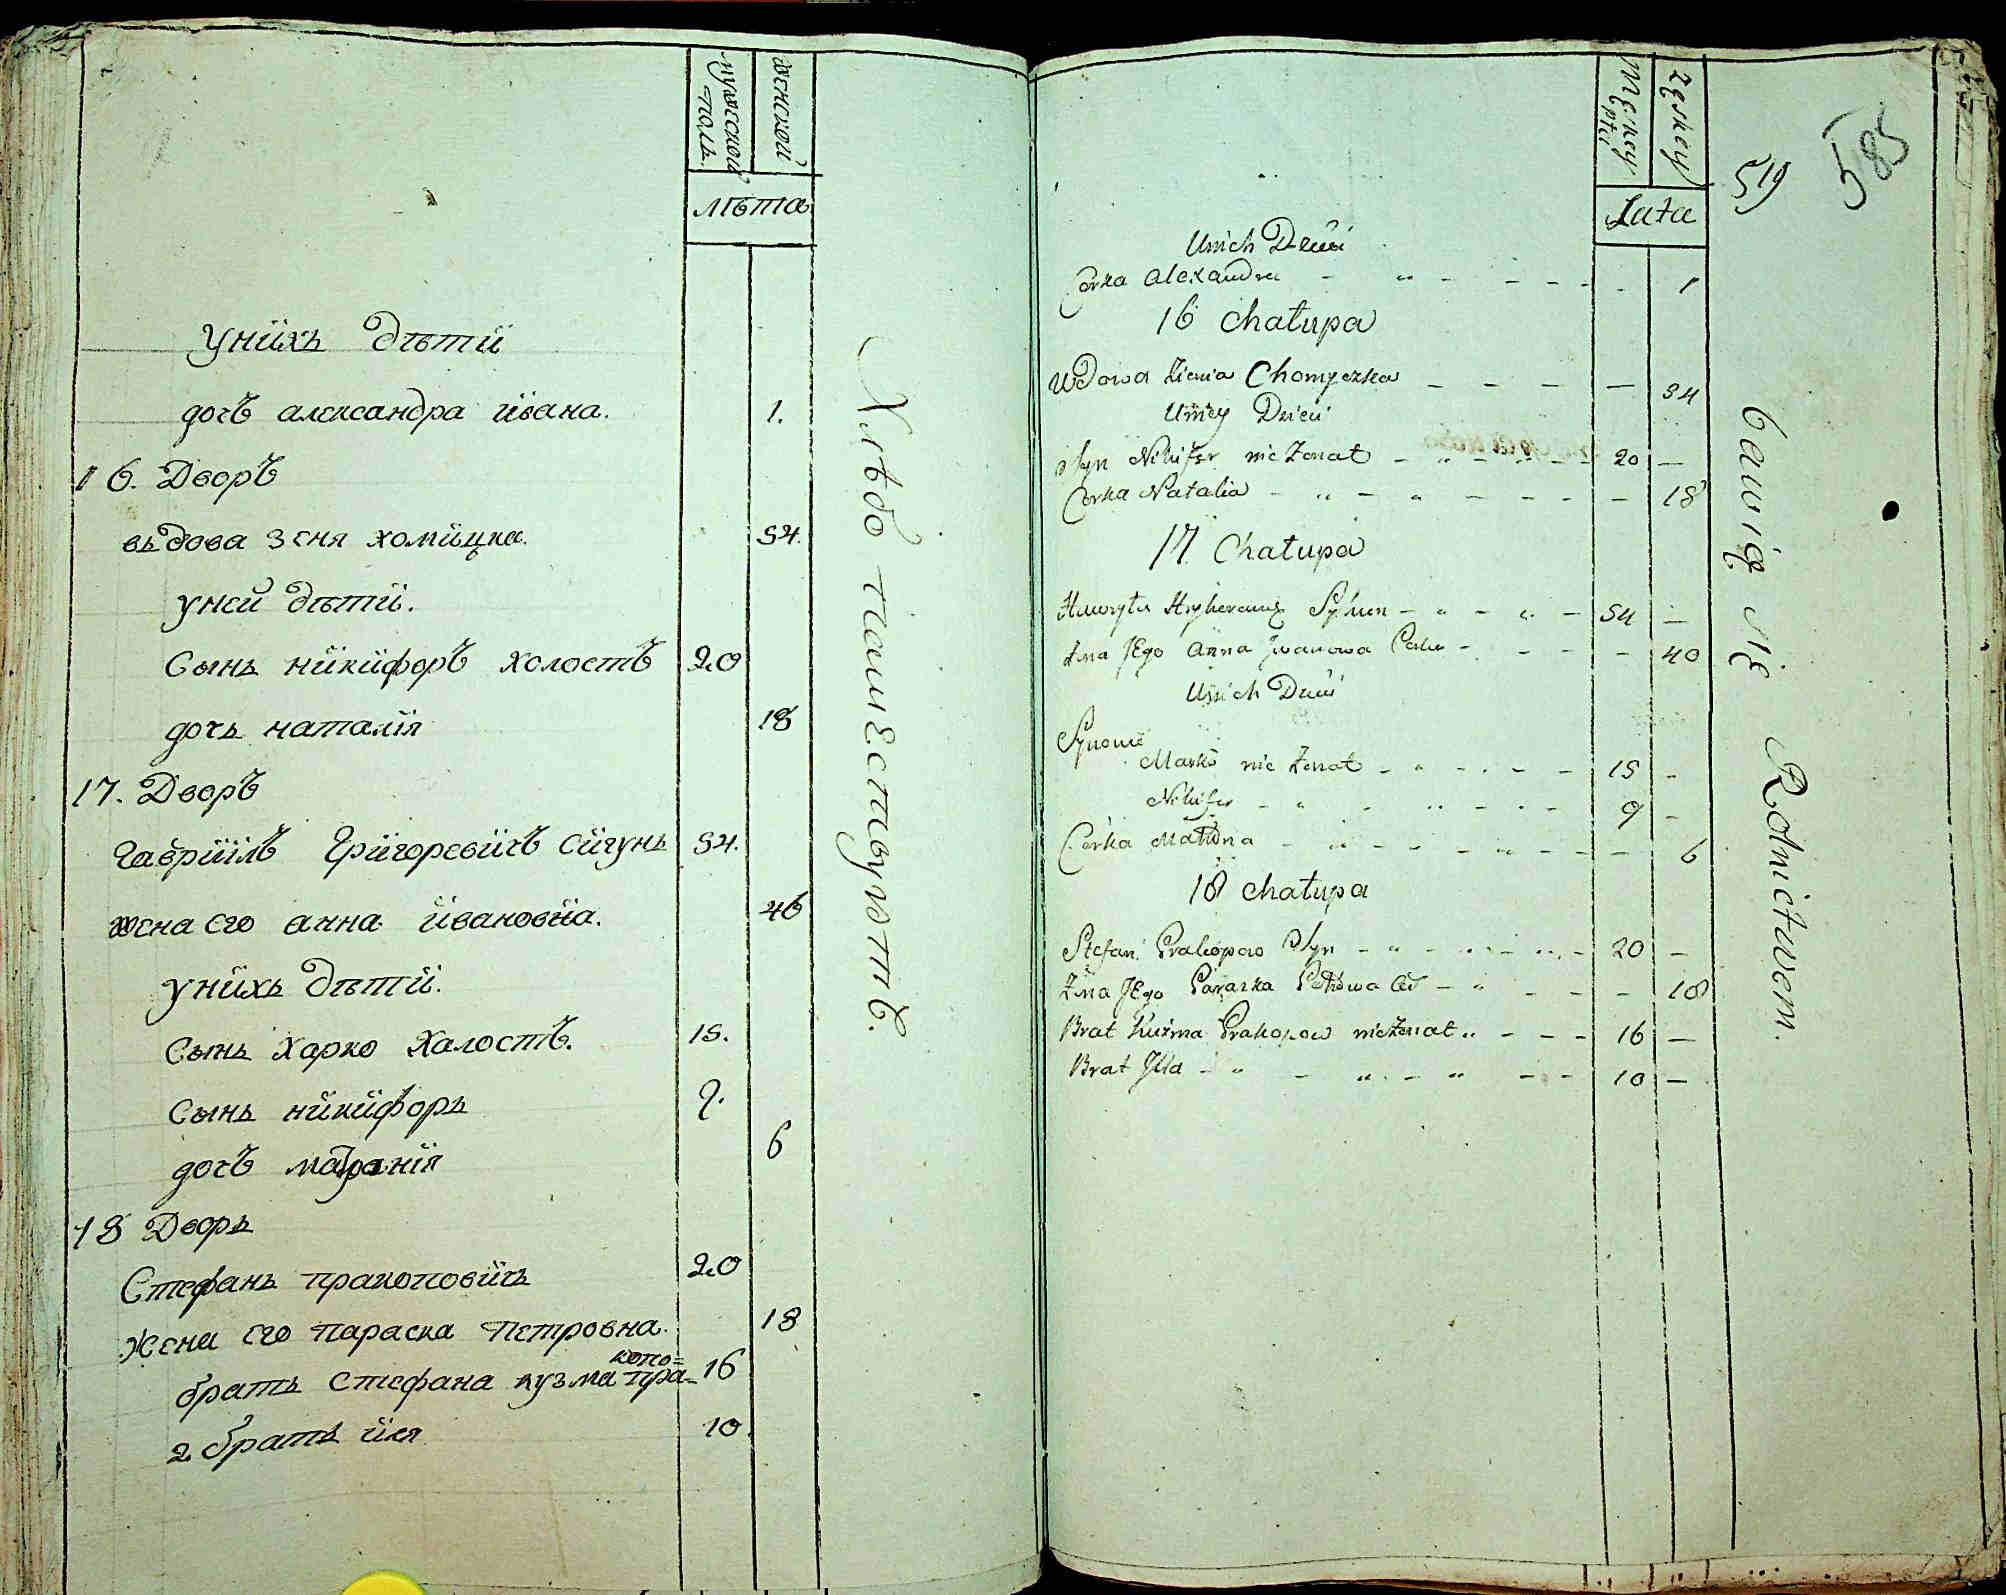 мужеской
полъ.
женской
лѣта
унихъ дѣти
дочъ александра ивана. 1.
16. Дворъ
вьдова зеня хомицка. 54.
уней дѣти.
Сынъ никифоръ холостъ 20
дочь наталія 18
17. Дворъ
Гавриилъ Григоревичъ Сигунъ 54.
жена его анна ивановна. 46
унихъ дѣти.
Сынъ харко халостъ. 15.
Сынъ никифоръ 9.
дочъ матронія 6
18 Дворъ
Стефанъ пракоповичъ 20
Жена его параска Петровна. 18
копо=
братъ стефана кузма пра- 16
2 братъ иля 10
Хлѣбопашествуютъ.
Męzkey
płci
Zęskey
Lata
519
585
Unich Dzieci
Corka Alexandra - - - - 1
16 Chatupa
Wdowa Zienia Chomyczka - - - - 54
Uniey Dzieci
Syn Nikifor nie Zonat - - - 20 -
Corka Natalia - - - - 18
17 Chatupa
Hawryło Syhun - - - 54 -
Zona JEgo Anna Jwanowa - - - 40
Unich Dzieci
Synowie
Marko nie Zonat - - - 15 -
Nikifor - - - 9 -
Corka Matrona - - - - 6
18 Chatupa
Stefan Prakopow Syn - - - 20 -
Zona JEgo Paraska Petrowa - - - 18
Brat Kuzma Prakopow nieZonat - - - 16 -
Brat Jlla - - - - 10 -
bawią się Rolnictwem.